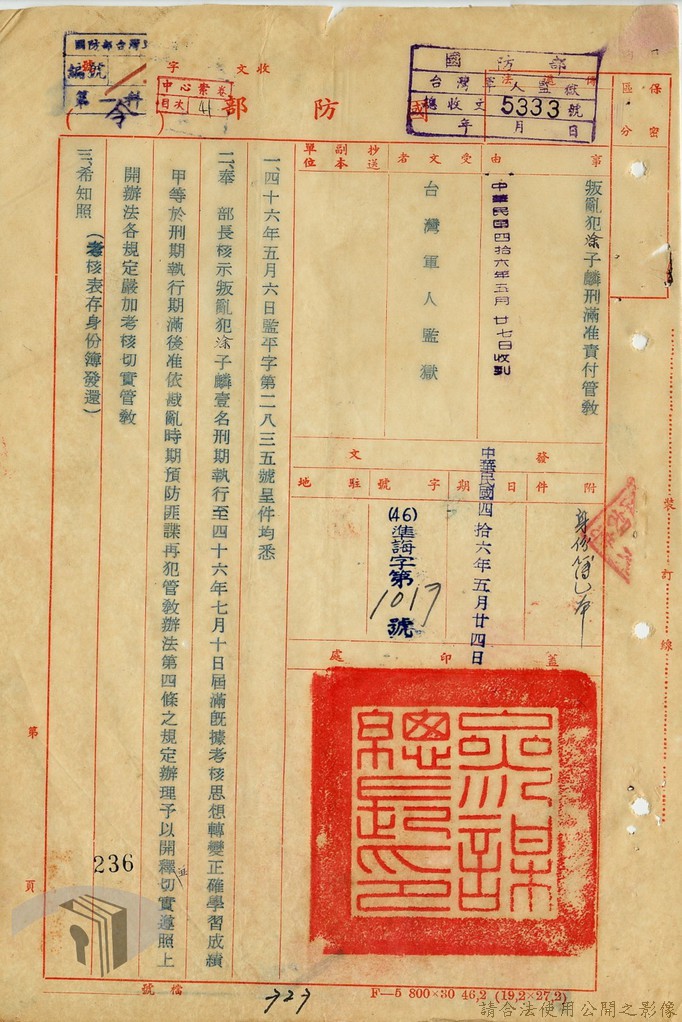 保密區分
國防部
台灣軍人監獄
總收文5333號
年 月 日
收文 字 號
國防部台灣
編號
第 科
中心業卷
目次 41
國防部
令
事由
叛亂犯涂子麟刑滿准責付管教
中華民國四拾六年五月廿七日收到
受文者
台灣軍人監獄
抄送副本單位
附件
身份簿乙本
發文
日期
中華民國四拾六年五月廿四日
字號
(46)準誨字第1017號
駐地
蓋印處
參謀總長印
一、四十六年五月六日監平字第二八三五號呈件均悉
二、奉 部長核示叛亂犯涂子麟壹名刑期執行至四十六年七月十日屆滿既據考核思想轉變正確學習成績
甲等於刑期執行期滿後准依戡亂時期預防匪諜再犯管教辦法第四條之規定辦理予以開釋切實遵照上
開辦法各規定嚴加考核切實管教
三、希知照 (考核表存身份簿發還)
裝訂線
第 頁
236
檔號
F—5 800×30 46,2 (19,2×27,2)
請合法使用公開之影像